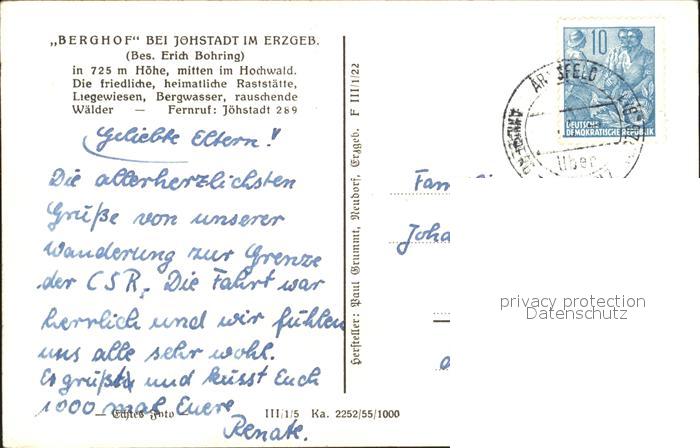 „BERGHOF“ BEI JÖHSTADT IM ERZGEB.
(Bes. Erich Bohring)
in 725 m Höhe, mitten im Hochwald.
Die friedliche, heimatliche Raststätte,
Liegewiesen, Bergwasser, rauschende
Wälder — Fernruf: Jöhstadt 289
Geliebte Eltern!
Die allerherzlichsten
Grüße von unserer
Wanderung zur Grenze
der CSR. Die Fahrt war
herrlich und wir fühlen
uns alle sehr wohl.
Es grüßt und küsst Euch
1000 mal Euere
Renate.
— Echtes Foto — III/1/5 Ka. 2252/55/1000
Hersteller: Paul Grummt, Neudorf, Erzgeb. F III/1/22
10
DEUTSCHE
DEMOKRATISCHE REPUBLIK
über
Fam
Joha
privacy protection
Datenschutz